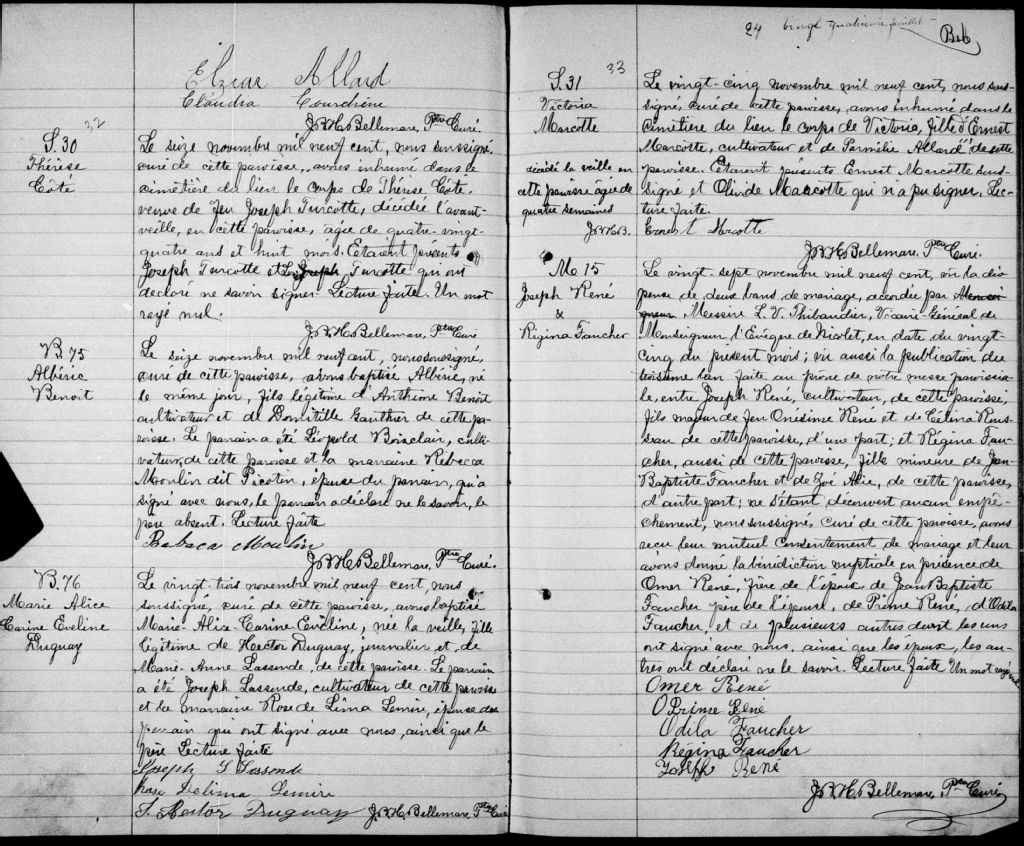 Elzear Allard
Claudia Courchène
J.B.H. Bellemare, Ptre Curé.
32
S. 30
Thérèse
Côté
Le seize novembre mil neuf cent, nous soussigné,
curé de cette paroisse, avons inhumé dans le
cimetière du lieu le corps de Thérèse Côté
veuve de feu Joseph Turcotte, décédée l'avant-
veille, en cette paroisse, âgée de quatre-vingt-
quatre ans et huit mois. Etaient présents
Joseph Turcotte et Joseph Turcotte qui ont
déclaré ne savoir signer. Lecture faite. Un mot
rayé nul.
J.B.H. Bellemare, Ptre Curé
B. 75
Albéric
Benoit
Le seize novembre mil neuf cent, nous soussigné,
curé de cette paroisse, avons baptisé Albéric, né
le même jour, fils légitime d'Anthime Benoit
cultivateur et de Domitille Gauthier de cette pa-
roisse. Le parrain a été Léopold Boisclair, culti-
vateur, de cette paroisse et la marraine Rébecca
Moulin dit Picotin, épouse du parrain, qui a
signé avec nous, le parrain a déclaré ne le savoir, le
père absent. Lecture faite
Rebaca Moulin
J.B.H. Bellemare, Ptre Curé.
B. 76
Marie Alice
Carine Eveline
Duguay
Le vingt-trois novembre mil neuf cent, nous
soussigné, curé de cette paroisse, avons baptisé
Marie-Alice-Carine Eveline, née la veille, fille
légitime de Hector Duguay, journalier et de
Marie-Anne Lassonde, de cette paroisse. Le parrain
a été Joseph Lassonde, cultivateur de cette paroisse
et la marraine Rose de Lima Lemire, épouse du
parrain qui ont signé avec nous, ainsi que le
père Lecture faite
Joseph S Lassonde
Rose Delima Lemire
J. Hector Duguay J.B.H. Bellemare, Ptre Curé
24 vingt quatrième feuillet
33
S. 31
Victoria
Marcotte
décédée la veille en
cette paroisse âgée de
quatre semaines
J.B.H.B.
Le vingt-cinq novembre mil neuf cent, nous sous-
signé, curé de cette paroisse, avons inhumé dans le
cimetière du lieu le corps de Victoria, fille d'Ernest
Marcotte, cultivateur et de Parmélie Allard de cette
paroisse. Etaient présents Ernest Marcotte sous-
signé et Olivide Marcotte qui n'a pu signer. Lec-
ture faite.
Ernest Marcotte
J.B.H. Bellemare, Ptre Curé.
M 15
Joseph René
&
Régina Faucher
Le vingt-sept novembre mil neuf cent, vu la dis-
pense de deux bans de mariage, accordée par Monsei-
gneur Messire L. V. Thibaudier, Vicaire-Général de
Monseigneur l'Evêque de Nicolet, en date du vingt-
cinq du présent mois; vu aussi la publication du
troisième ban faite au prône de notre messe paroissia-
le, entre Joseph René, cultivateur, de cette paroisse,
fils majeur de feu Onésime René et de Célina Rous-
seau de cette paroisse, d'une part; et Régina Fau-
cher, aussi de cette paroisse, fille mineure de Jean
Baptiste Faucher et de Zoé Alie, de cette paroisse,
d'autre part; ne s'étant découvert aucun empê-
chement, nous soussigné, Curé de cette paroisse, avons
reçu leur mutuel consentement de mariage et leur
avons donné la bénédiction nuptiale en présence de
Omer René, frère de l'époux de Jean Baptiste
Faucher père de l'épouse, de Prime René, d'Odila
Faucher, et de plusieurs autres dont les uns
ont signé avec nous, ainsi que les époux, les au-
tres ont déclaré ne le savoir. Lecture faite Un mot rayé nul
Omer René
O Prime René
Odila Faucher
Régina Faucher
Joseph René
J.B.H. Bellemare, Ptre Curé